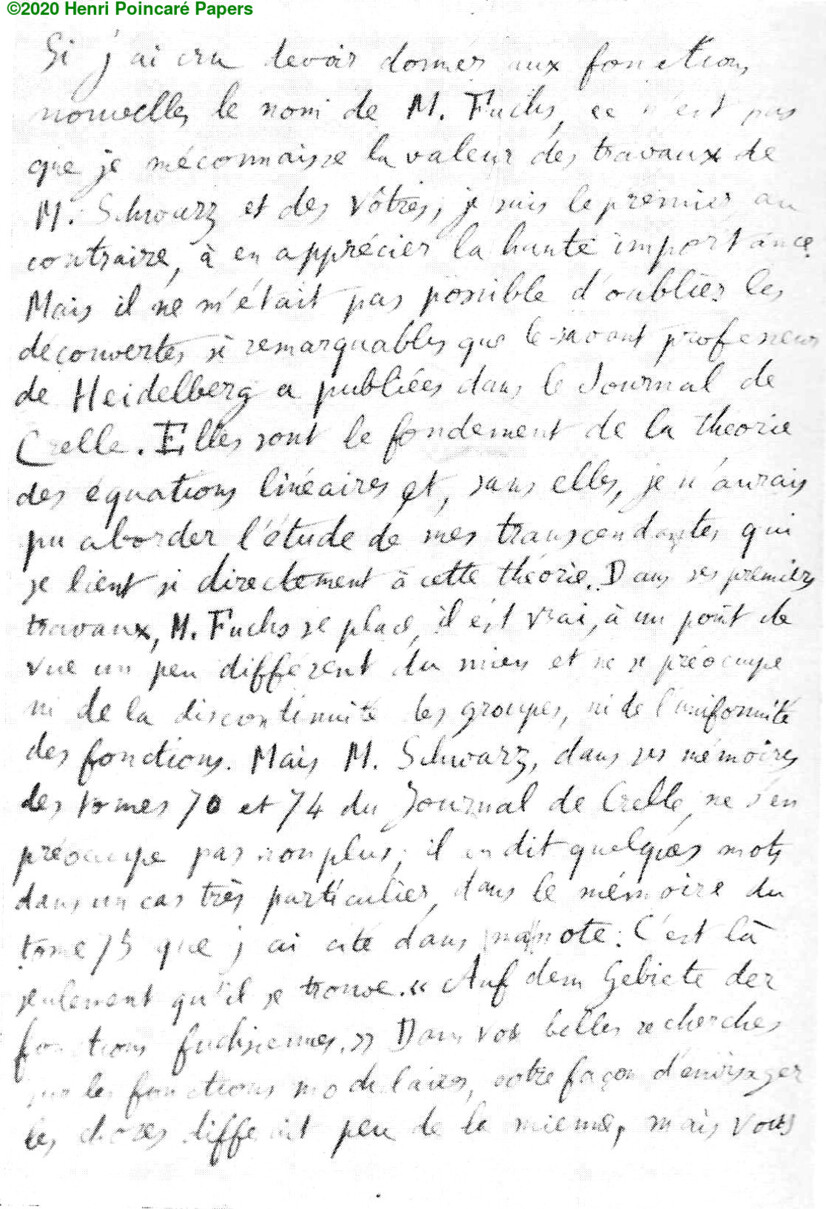 ©2020 Henri Poincaré Papers
Si j'ai cru devoir donner aux fonctions
nouvelles le nom de M. Fuchs, ce n'est pas
que je méconnaisse la valeur des travaux de
M. Schwarz et des vôtres; je suis le premier au
contraire, à en apprécier la haute importance.
Mais il ne m'était pas possible d'oublier les
découvertes si remarquables que le savant professeur
de Heidelberg a publiées dans le Journal de
Crelle. Elles sont le fondement de la théorie
des équations linéaires et, sans elles, je n'aurais
pu aborder l'étude de mes transcendantes qui
se lient si directement à cette théorie. Dans ses premiers
travaux, M. Fuchs se place, il est vrai, à un point de
vue un peu différent du mien et ne se préoccupe
ni de la discontinuité des groupes, ni de l'uniformité
des fonctions. Mais M. Schwarz, dans ses mémoires
des tomes 70 et 74 du Journal de Crelle ne s'en
préoccupe pas non plus; il en dit quelques mots
dans un cas très particulier, dans le mémoire du
tome 75 que j'ai cité dans ma note. C'est là
seulement qu'il se trouve « Auf dem Gebiete der
fonctions fuchsiennes. » Dans vos belles recherches
sur les fonctions modulaires, votre façon d'envisager
les choses différait peu de la mienne, mais vous